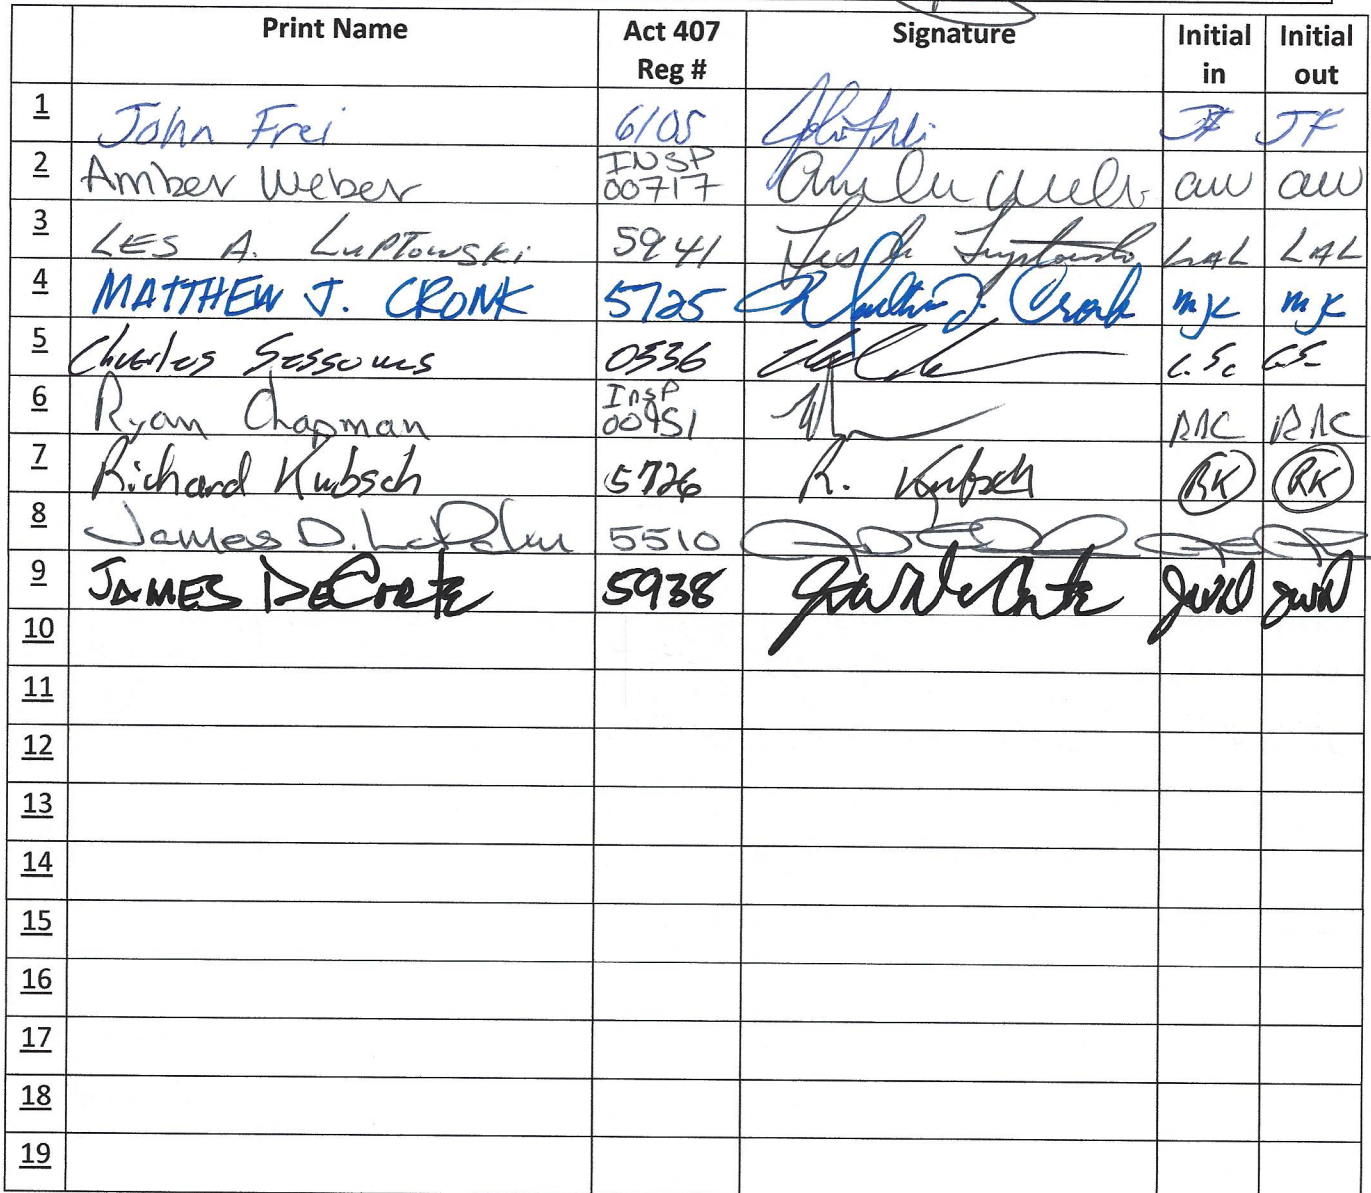 Print Name Act 407 Signature Initial Initial
Reg # in out
1 John Frei 6105 John Frei JF JF
2 Amber Weber INSP 00717 Amber Weber aw aw
3 LES A. LuPTowSKi 5941 Leslie Luptowski LAL LAL
4 MATTHEW J. CRONK 5725 Matthew J. Cronk mjc mjc
5 Charles Sessoms 0536 C.S. C.S.
6 Ryan Chapman Insp 00951 RAC RAC
7 Richard Kubsch 5726 R. Kubsch RK RK
8 James D. 5510
9 JAMES DeCorte 5938 JWDeCorte JWD JWD
10
11
12
13
14
15
16
17
18
19